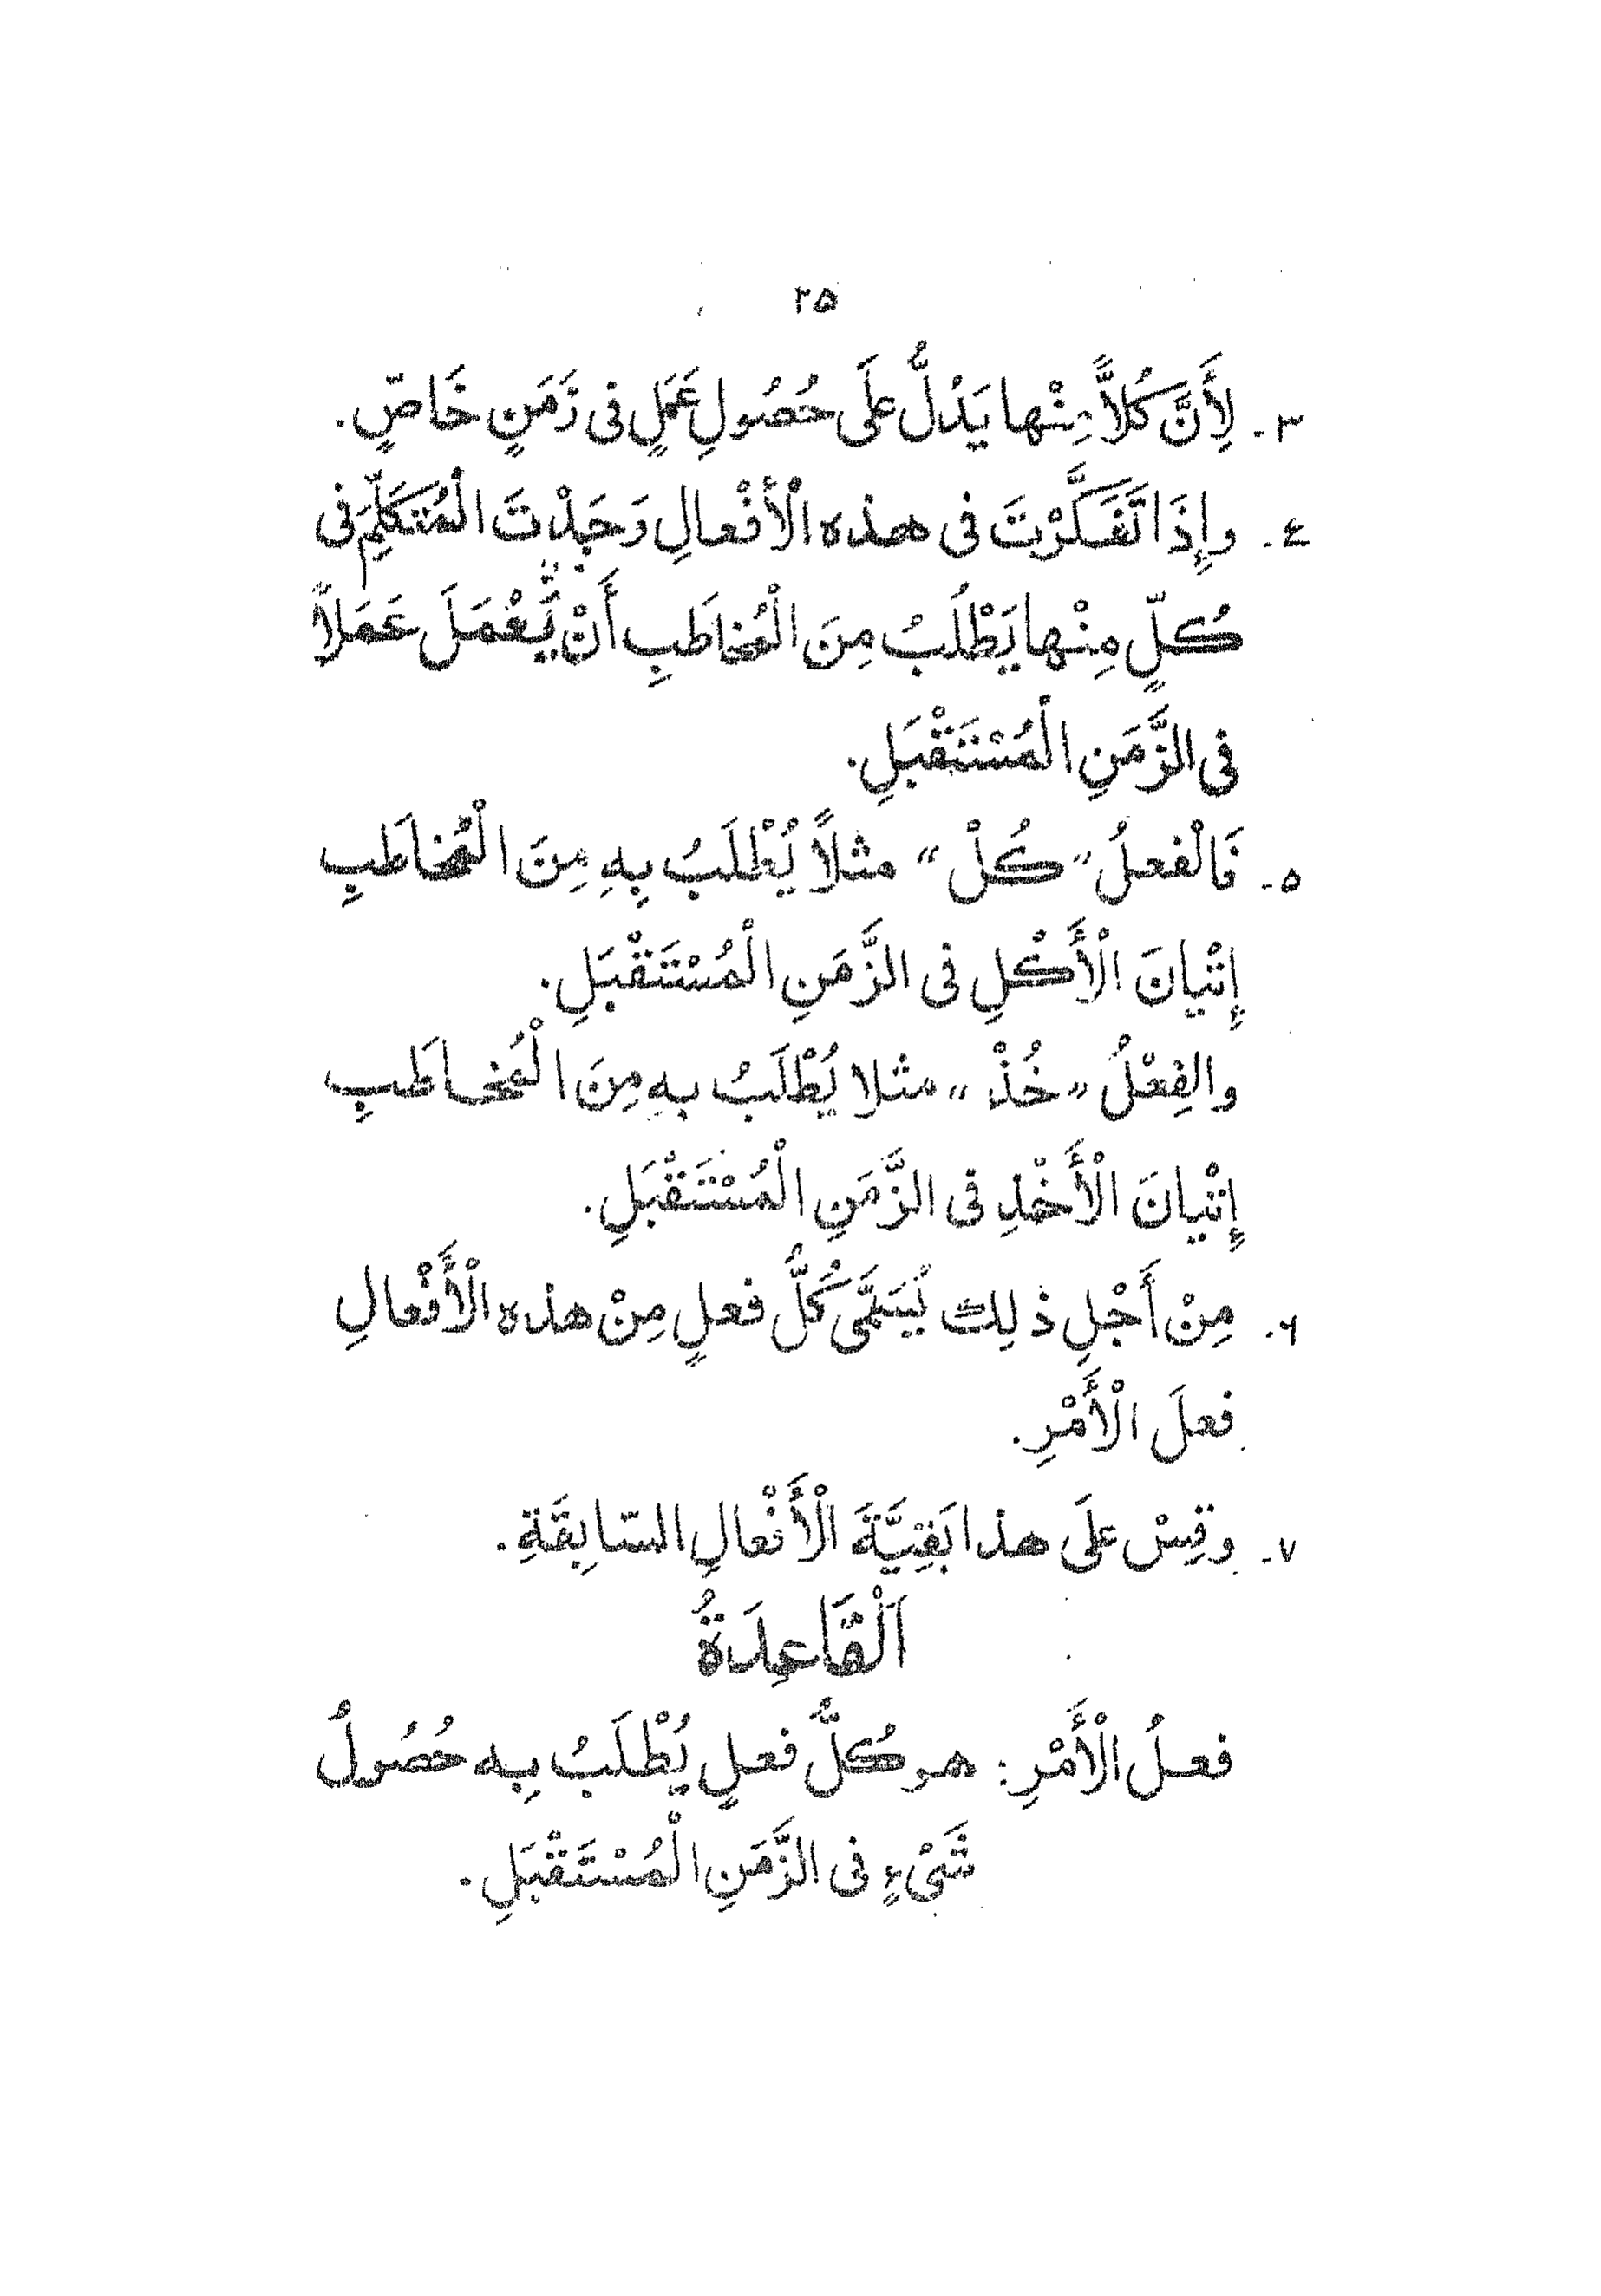 ٢٥
٣- لِأَنَّ كُلاًّ مِنْها يَدُلُّ عَلَى حُصُولِ عَمَلٍ فى زَمَنٍ خَاصٍّ.
٤- وإِذَا تَفَكَّرْتَ فى هذه الْأَفْعالِ وَجَدْتَ الْمُتَكَلِّمَ فى
كُلٍّ مِنْها يَطْلُبُ مِنَ الْمُخاطَبِ أَنْ يَّعْمَلَ عَمَلاً
فى الزَّمَنِ الْمُسْتَقْبَلِ.
٥- فَالْفعلُ "كُلْ" مثلاً يُطْلَبُ بِهِ مِنَ الْمُخاطَبِ
إِتْيانَ الْأَكْلِ فى الزَّمَنِ الْمُسْتَقْبَلِ.
والفِعْلُ "خُذْ" مثلا يُطْلَبُ بِهِ مِنَ الْمُخاطَبِ
إِتْيانَ الْأَخْذِ فى الزَّمَنِ الْمُسْتَقْبَلِ.
٦- مِنْ أَجْلِ ذلِك يُسَمَّى كُلُّ فعلٍ مِنْ هذه الْأَفْعالِ
فعلَ الْأَمْرِ.
٧- وقِسْ عَلَى هذا بَقِيَّةَ الْأَفْعالِ السّابِقَةِ.
اَلْقَاعِدَةُ
فعلُ الْأَمْرِ: هو كُلُّ فعلٍ يُطْلَبُ بِه حُصُولُ
شَىْءٍ فى الزَّمَنِ الْمُسْتَقْبَلِ.